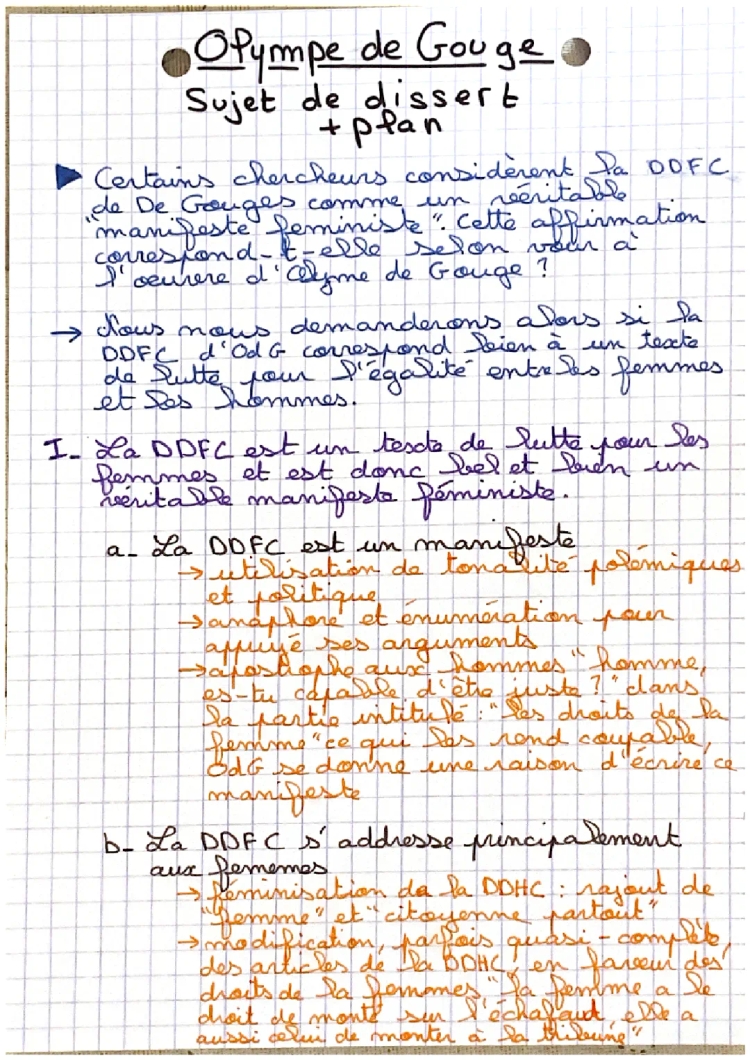 Olympe de Gouge
Sujet de dissert
+ plan
Certains chercheurs considèrent la DDFC
de De Gouges comme un véritable
"manifeste féministe". Cette affirmation
correspond-t-elle selon vous à
l'oeuvre d'Olyme de Gouge ?
→ Nous nous demanderons alors si la
DDFC d'OdG correspond bien à un texte
de lutte pour l'égalité entre les femmes
et les hommes.
I- La DDFC est un texte de lutte pour les
femmes et est donc bel et bien un
véritable manifeste féministe.
a- La DDFC est un manifeste
→ utilisation de tonalité polémiques
et politique
→ anaphore et énumération pour
appuyé ses arguments
→ apostrophe aux hommes "homme,
es-tu capable d'être juste ?" dans
la partie intitulé : "les droits de la
femme" ce qui les rend coupable,
OdG se donne une raison d'écrire ce
manifeste
b- La DDFC s'addresse principalement
aux fememes
→ féminisation da la DDHC : rajout de
"femme" et "citoyenne partout"
→ modification, parfois quasi-complète,
des articles de la DDHC, en faveur des
droits de la femmes "la femme a le
droit de monté sur l'échafaud, elle a
aussi celui de monter à la tribune"